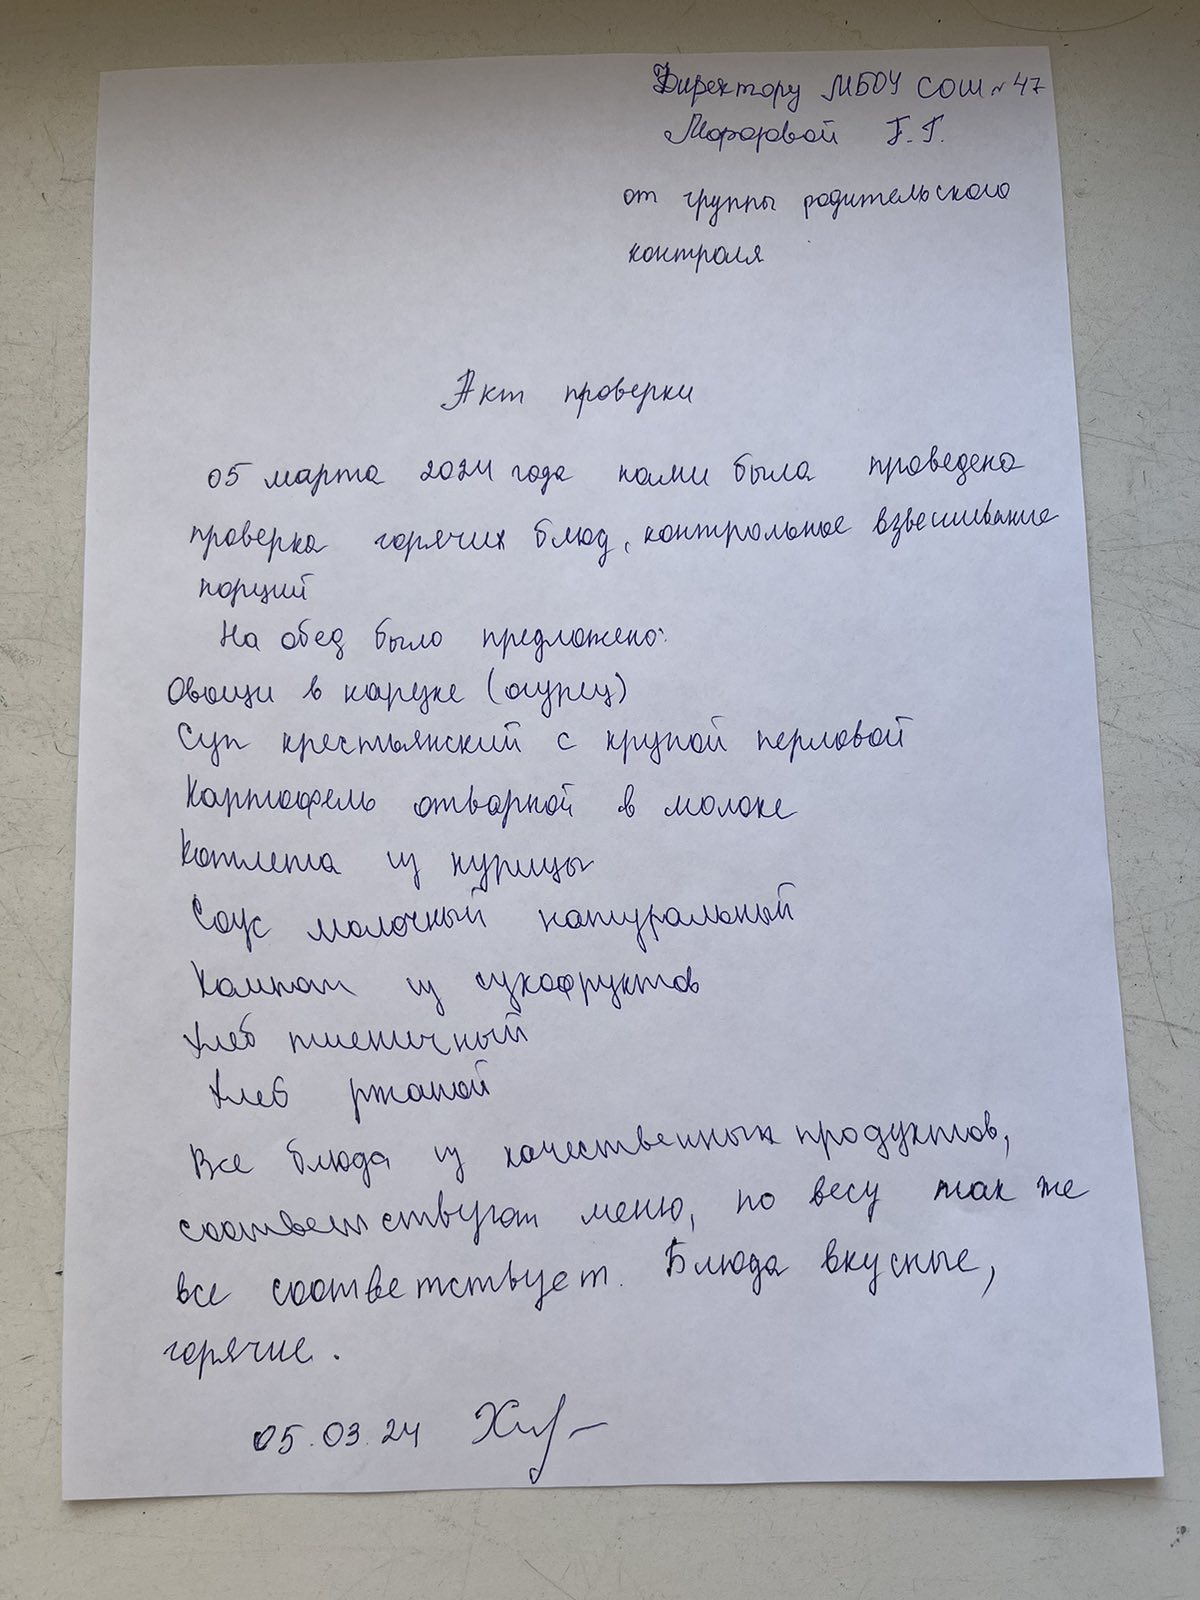 Директору МБОУ СОШ № 47
Г.Г.
от группы родительского
контроля
Акт проверки
05 марта 2024 года нами была проведена
проверка горячих блюд, контрольное взвешивание
порций
На обед было предложено:
Овощи в нарезке (огурец)
Суп крестьянский с крупой перловой
Картофель отварной в молоке
Котлета из курицы
Соус молочный натуральный
Компот из сухофруктов
Хлеб пшеничный
Хлеб ржаной
Все блюда из качественных продуктов,
соответствуют меню, по весу так же
все соответствует. Блюда вкусные,
горячие.
05.03.24